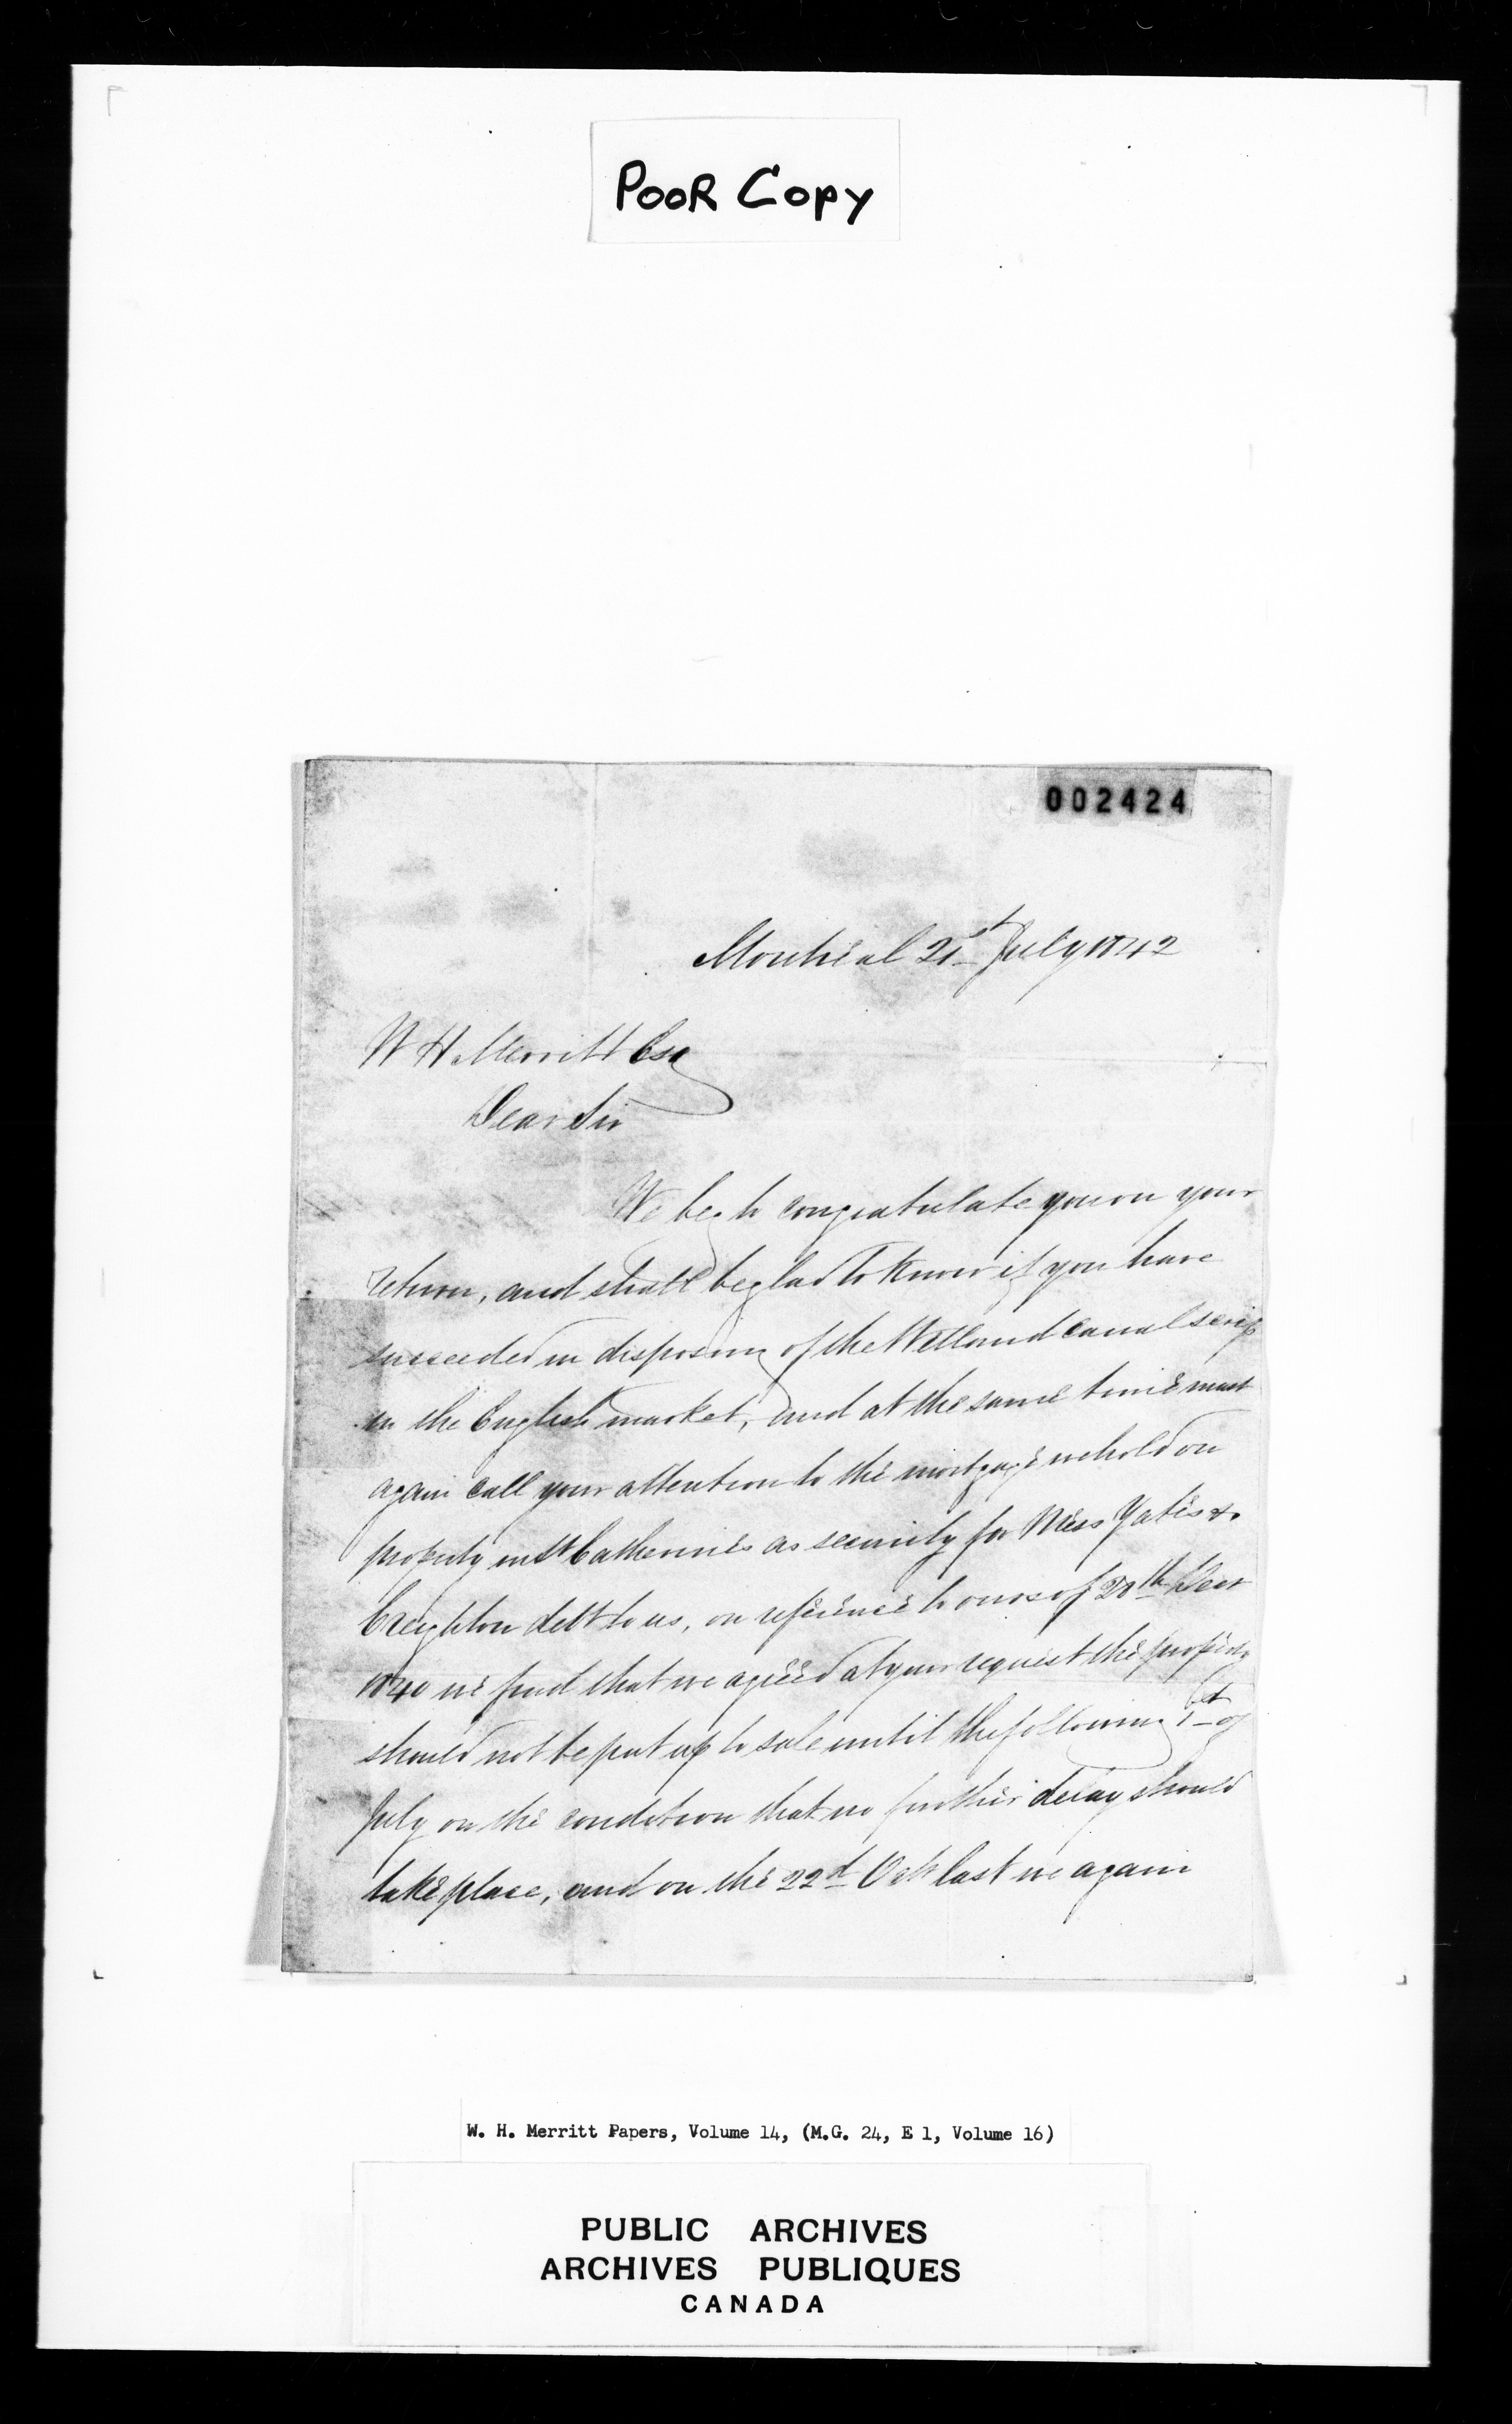 POOR COPY
002424
Montreal 21st July 1842
W H Merritt Esq
Dear Sir
We beg to congratulate you on your
return, and shall be glad to know if you have
succeeded in disposing of the Welland Canal scrip
in the English market, and at the same time must
again call your attention to the mortgage we hold on
property in St Catherines as security for Mess Yates &
Creighton debt to us, on reference to ours of 28th Decr
1840 we find that we agreed at your request the property
should not be put up to sale until the following 1st of
July on the condition that no further delay should
take place, and on the 22d Octr last we again
W. H. Merritt Papers, Volume 14, (M.G. 24, E 1, Volume 16)
PUBLIC ARCHIVES
ARCHIVES PUBLIQUES
CANADA